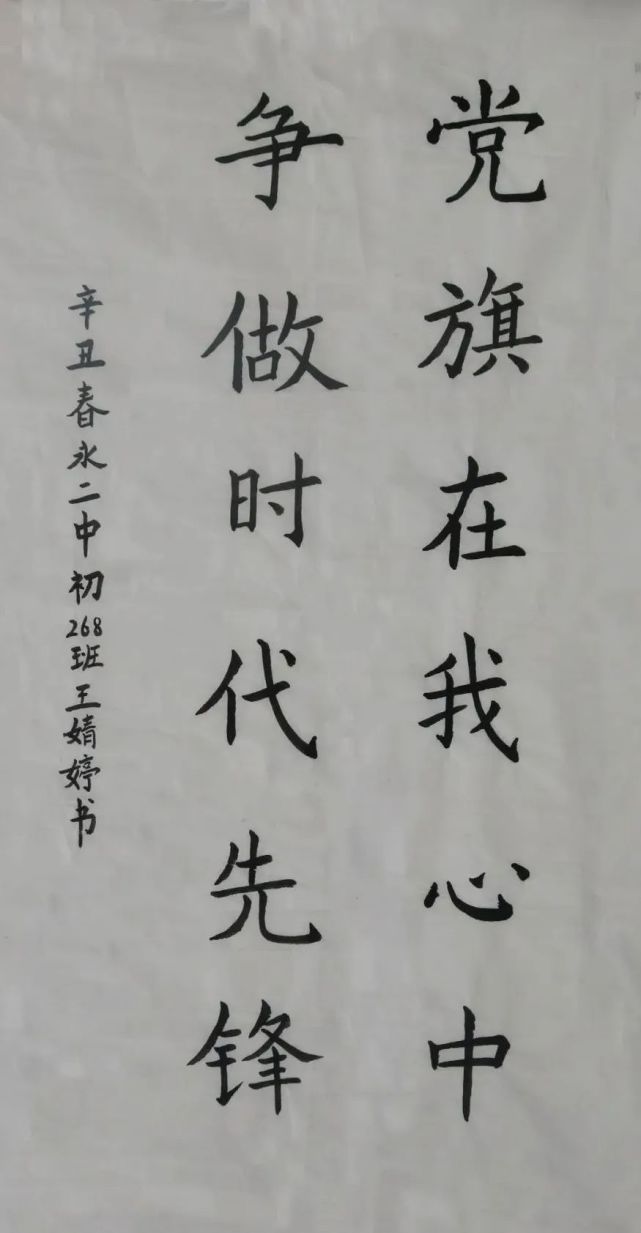 党旗在我心中
争做时代先锋
辛丑春永二中初268班王婧婷书